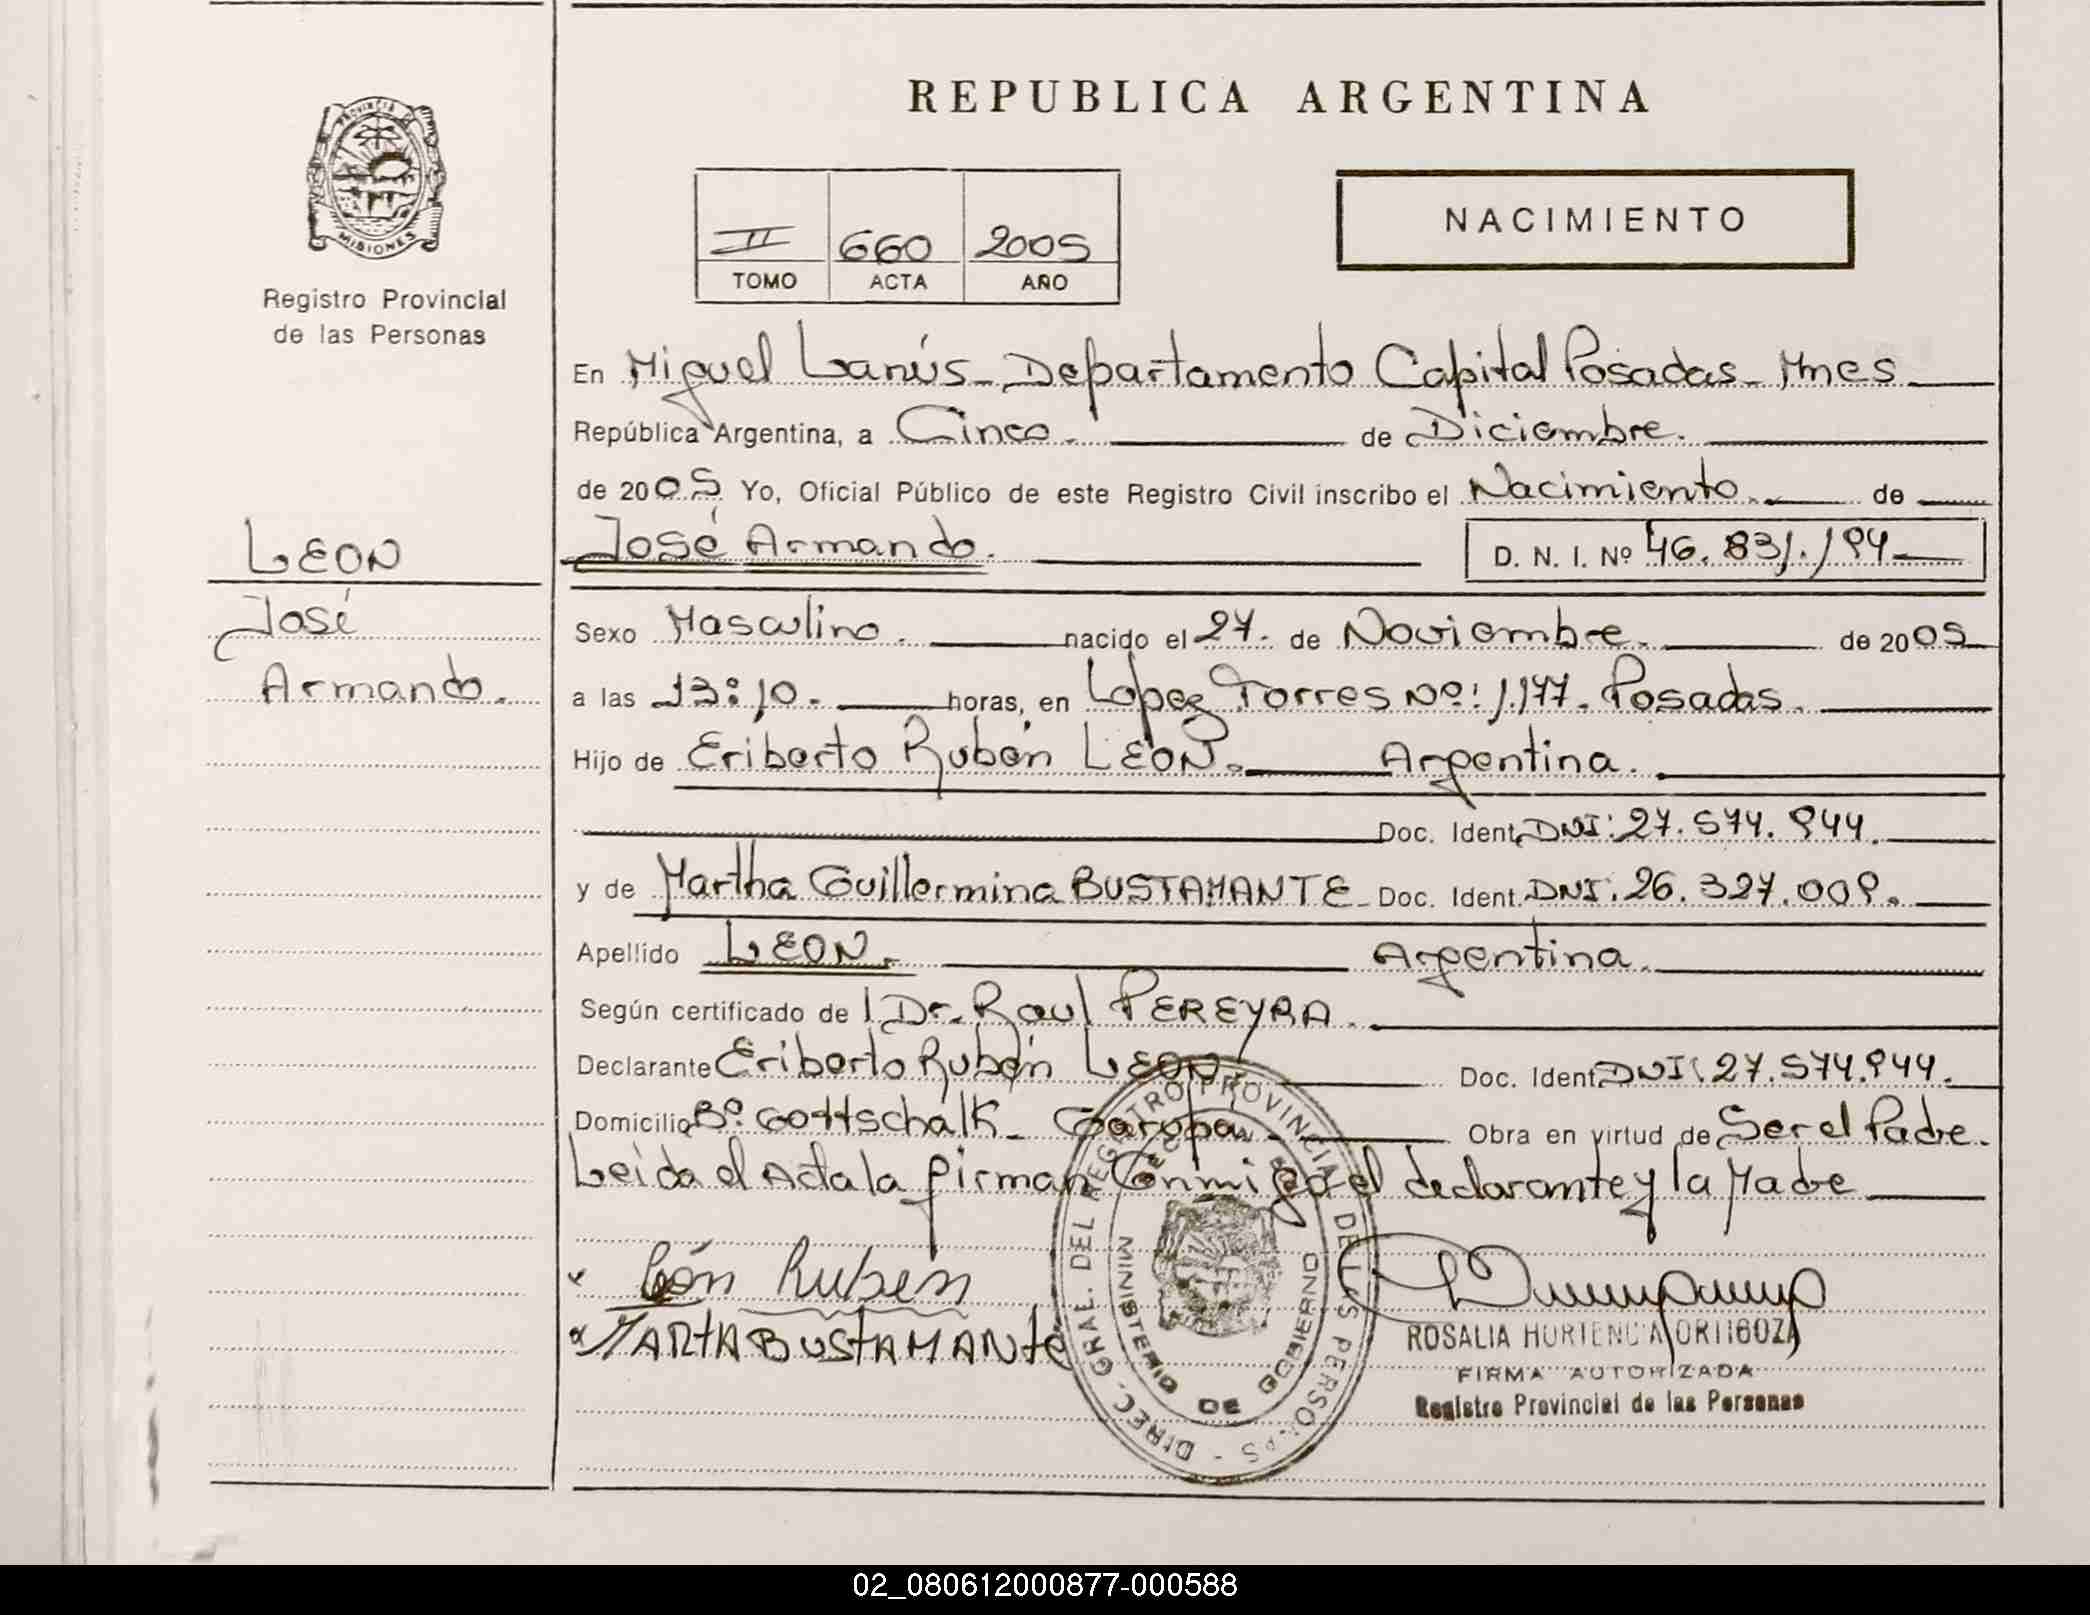 REPUBLICA ARGENTINA
PROVINCIA DE
MISIONES
Registro Provincial
de las Personas
II 660 2005
TOMO ACTA AÑO
NACIMIENTO
En Miguel Lanús - Departamento Capital Posadas - Mnes
República Argentina, a Cinco. de Diciembre.
de 2005 Yo, Oficial Público de este Registro Civil inscribo el Nacimiento. de
José Armando. D. N. I. Nº 46.831.194
LEON
José
Armando.
Sexo Masculino. nacido el 27. de Noviembre. de 2005
a las 13:10. horas, en Lopez Torres Nº: 1.177. Posadas.
Hijo de Eriberto Rubén LEON. Argentina.
Doc. Ident. DNI: 27.574.944.
y de Martha Guillermina BUSTAMANTE - Doc. Ident. DNI: 26.327.009.
Apellido LEON. Argentina.
Según certificado de Dr. Raul PEREYRA.
Declarante Eriberto Rubén LEON. Doc. Ident. DNI: 27.574.944.
Domicilio Bº. Gottschalk - Garupa. Obra en virtud de Ser el Padre.
Leida el Acta la firman Conmigo el declarante y la Madre
León Rubén
MARTA BUSTAMANTE
DIREC. GRAL. DEL REGISTRO PROVINCIAL DE LAS PERSONAS
MINISTERIO DE GOBIERNO
ROSALIA HORTENCIA ORTIGOZA
FIRMA AUTORIZADA
Registro Provincial de las Personas
02_080612000877-000588